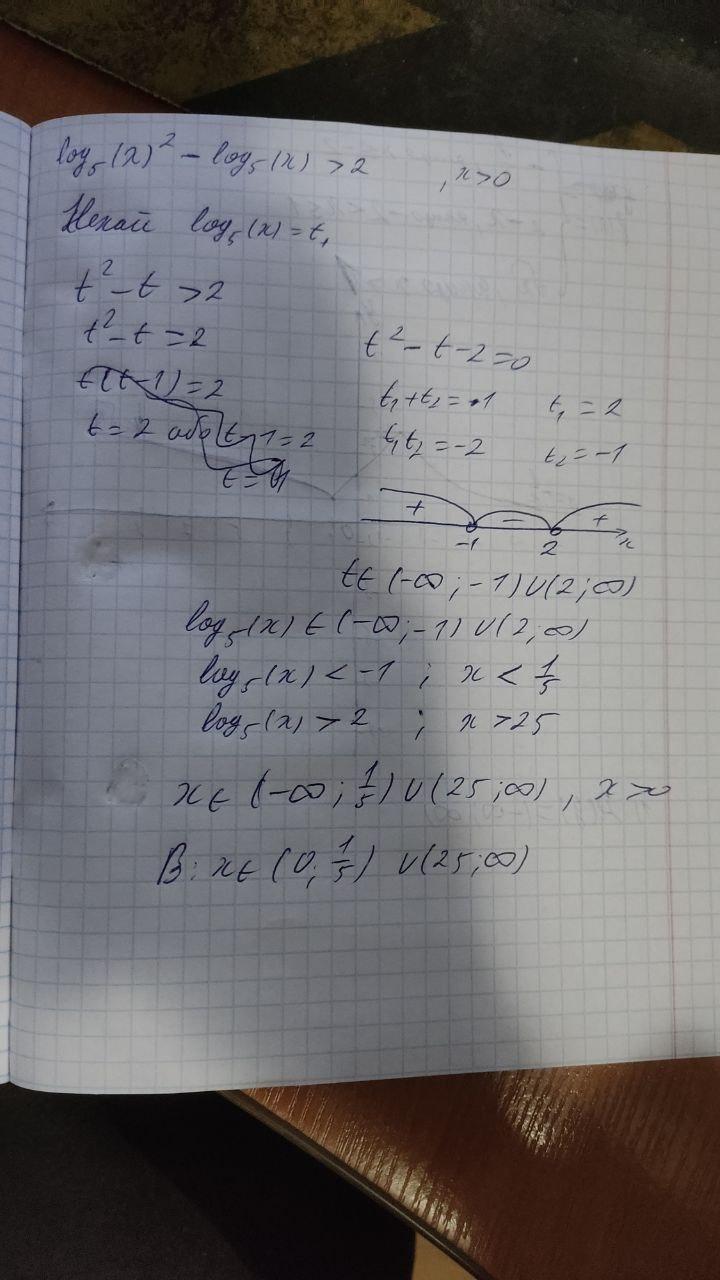 log₅(x)² - log₅(x) > 2 , x>0
Нехай log₅(x) = t,
t² - t > 2
t² - t = 2
t(t-1) = 2
t = 2 або t-1 = 2
t =
t² - t - 2 = 0
t₁ + t₂ = 1 t₁ = 2
t₁t₂ = -2 t₂ = -1
+ - +
-1 2 x
t ∈ (-∞; -1) ∪ (2; ∞)
log₅(x) ∈ (-∞; -1) ∪ (2; ∞)
log₅(x) < -1 ; x < 1/5
log₅(x) > 2 ; x > 25
x ∈ (-∞; 1/5) ∪ (25; ∞), x>0
В: x ∈ (0; 1/5) ∪ (25; ∞)